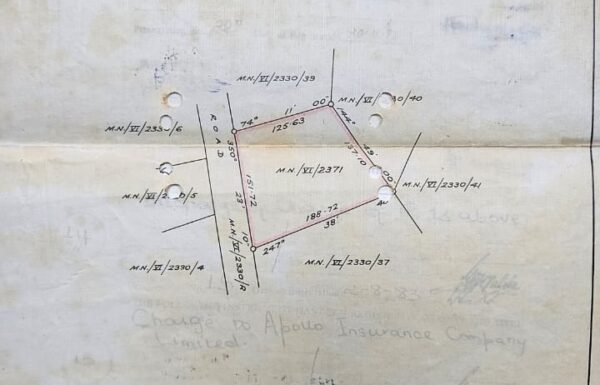 M.N./VI/2330/39
M.N./VI/ /40
M.N./VI/ /6
ROAD
74°
11'
00"
125.63
144°
49'
00"
137.10
350°
M.N./VI/2371
M.N./VI/2330/41
M.N./VI/ /5
151.72
23'
10"
188.72
38'
247°
M.N./VI/2330/R
M.N./VI/2330/4
M.N./VI/2330/37
is above
Charge to Apollo Insurance Company
Limited.